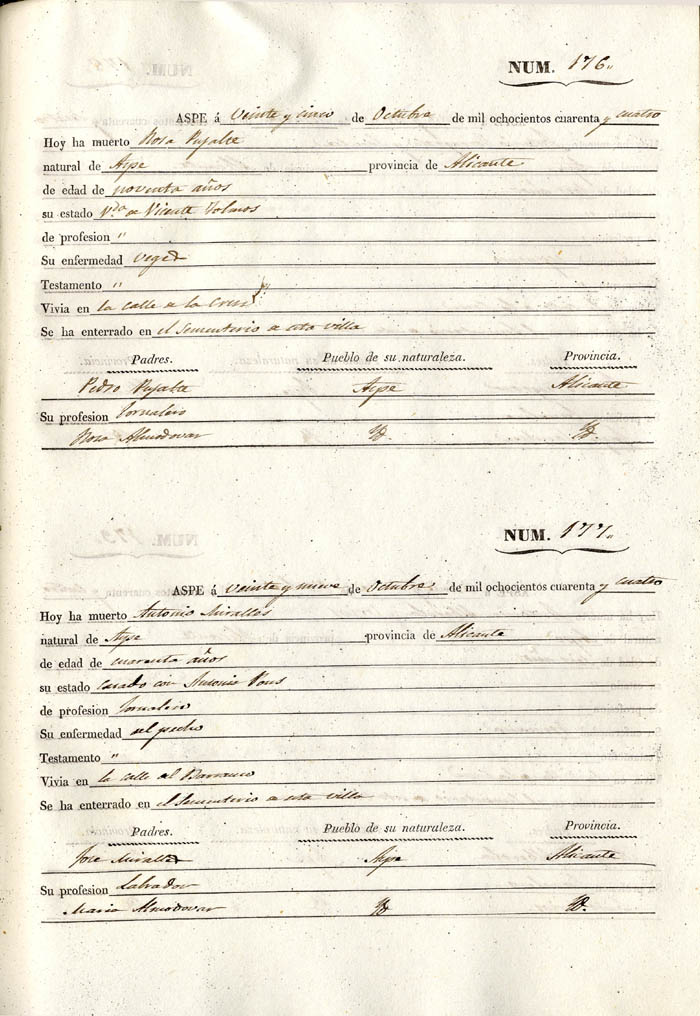 NUM. 176.
ASPE á Veinte y cinco de Octubre de mil ochocientos cuarenta y cuatro
Hoy ha muerto Rosa Pujalte
natural de Aspe provincia de Alicante
de edad de noventa años
su estado Vda de Vicente
de profesion "
Su enfermedad vegez
Testamento "
Vivia en la calle de la Cruz
Se ha enterrado en el Sementerio de esta villa
Padres. Pueblo de su naturaleza. Provincia.
Pedro Pujalte Aspe Alicante
Su profesion Jornalero
Rosa Almodovar Yd. Yd.
NUM. 177.
ASPE á veinte y nueve de Octubre de mil ochocientos cuarenta y cuatro
Hoy ha muerto Antonio Miralles
natural de Aspe provincia de Alicante
de edad de cuarenta años
su estado casado con Pons
de profesion Jornalero
Su enfermedad del pecho
Testamento "
Vivia en la calle del Barranco
Se ha enterrado en el Sementerio de esta villa
Padres. Pueblo de su naturaleza. Provincia.
Jose Miralles Aspe Alicante
Su profesion Labrador
Maria Almodovar Yd Yd.